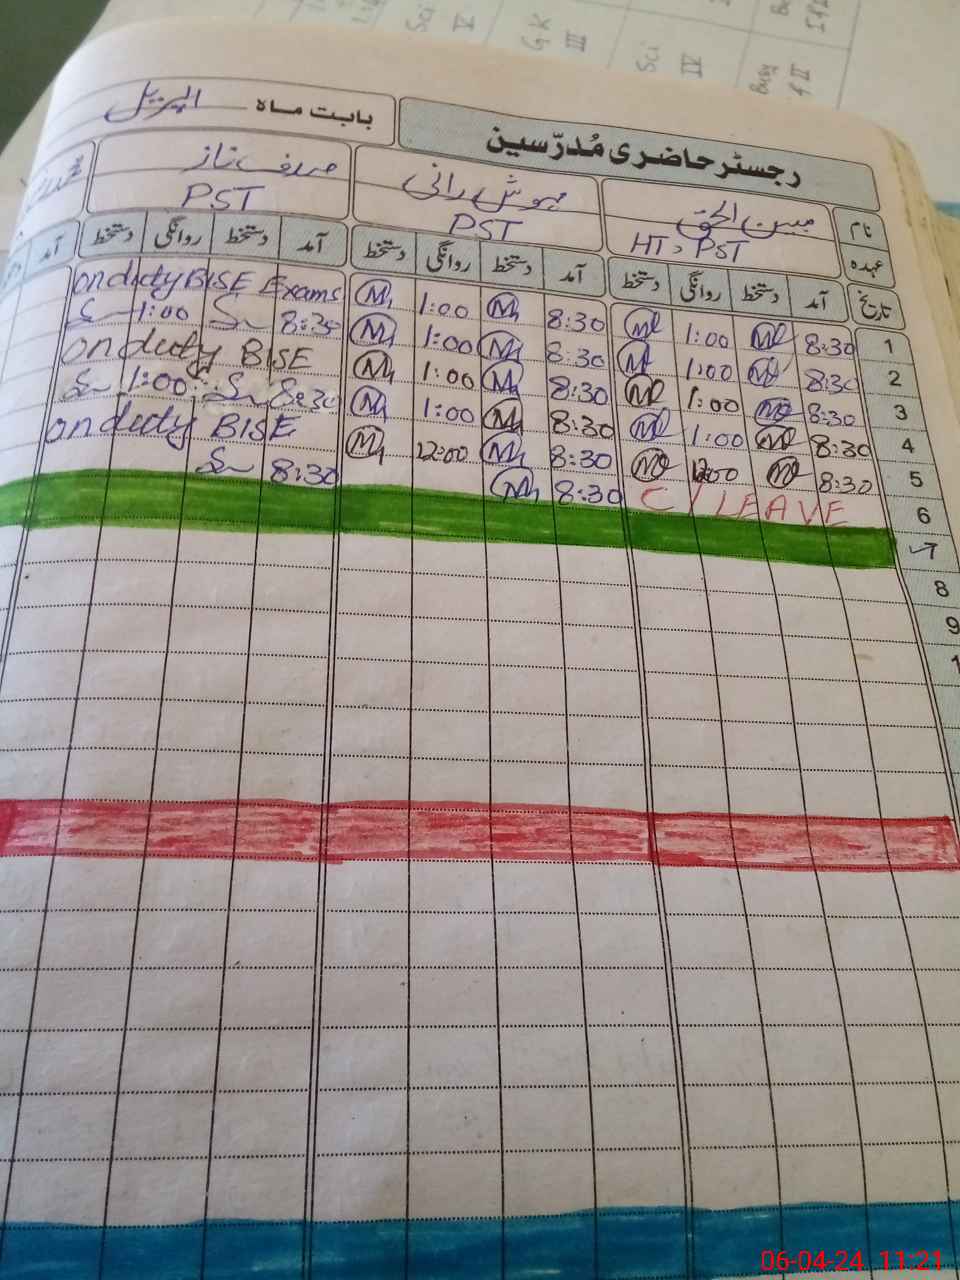 رجسٹر حاضری مُدرّسین
بابت ماہ اپریل
نام مبین الحق مہوش رانی صدف ناز
عہدہ HT, PST PST PST
تاریخ آمد دستخط روانگی دستخط آمد دستخط روانگی دستخط آمد دستخط روانگی دستخط آمد
1 8:30 1:00 8:30 1:00 on duty BISE Exams
2 8:30 1:00 8:30 1:00 8:30 1:00
3 8:30 1:00 8:30 1:00 on duty BISE
4 8:30 1:00 8:30 1:00 8:30 1:00
5 8:30 12:00 8:30 12:00 on duty BISE
6 C/LEAVE 8:30 8:30
7
8
9
1
Sci V
GK III
Sci IV
II
06-04-24 11:21